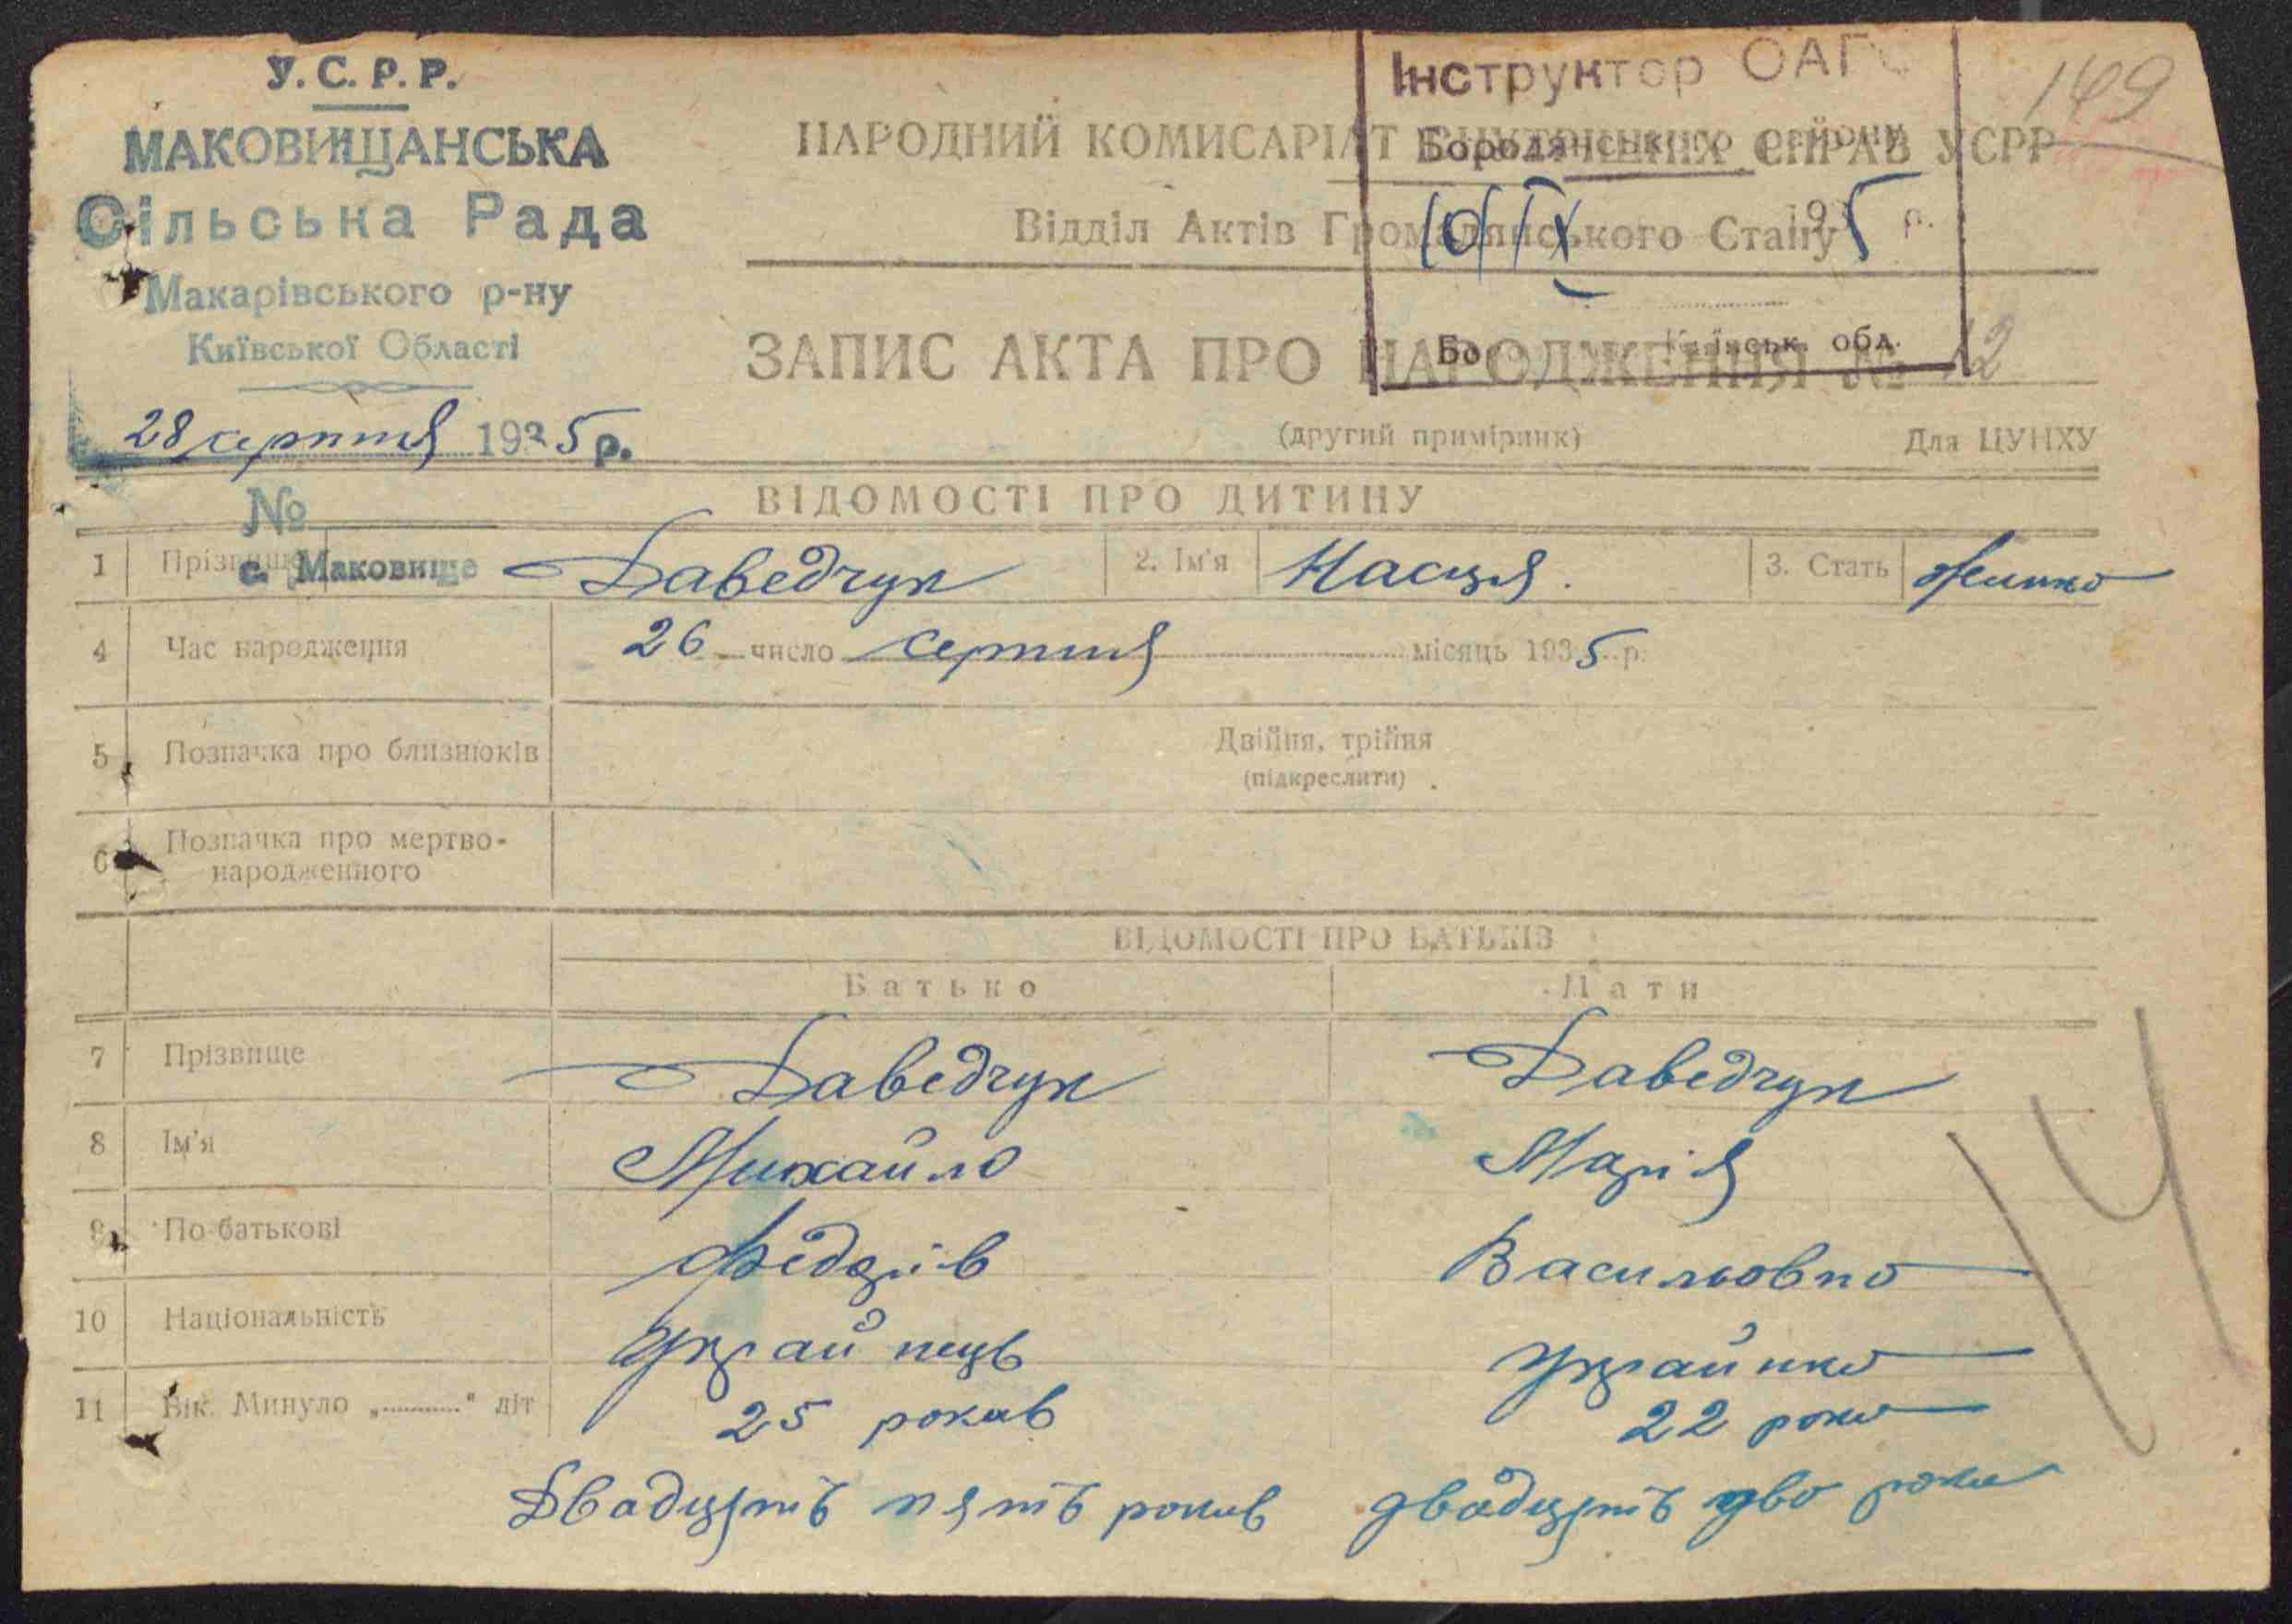 У.С.Р.Р.
МАКОВИЩАНСЬКА
Сільська Рада
Макарівського р-ну
Київської Області
28 серпня 1935 р.
№
с. Маковище
Інструктор ОАГС
Бородянського району
10/IX 1935 р.
Київськ. обл.
149
НАРОДНИЙ КОМИСАРІАТ ВНУТРІШНІХ СПРАВ УСРР
Відділ Актів Громадянського Стану
ЗАПИС АКТА ПРО НАРОДЖЕННЯ № 12
(другий примірник) Для ЦУНХУ
ВІДОМОСТІ ПРО ДИТИНУ
1 Прізвище Даведчук 2. Ім'я Насця. 3. Стать жинко
4 Час народження 26 число серпня місяць 1935 р.
5 Позначка про близнюків Двійня, трійня
(підкреслити)
6 Позначка про мертво-
народженного
ВІДОМОСТІ ПРО БАТЬКІВ
Батько Мати
7 Прізвище Даведчук Даведчук
8 Ім'я Михайло Марія
9 По-батькові Федорів Васильовно
10 Національність Украйнець Украйнко
11 Вік. Минуло „..........“ літ 25 рокив 22 роки
Двадцять пять рокив двадцять дво роки
14